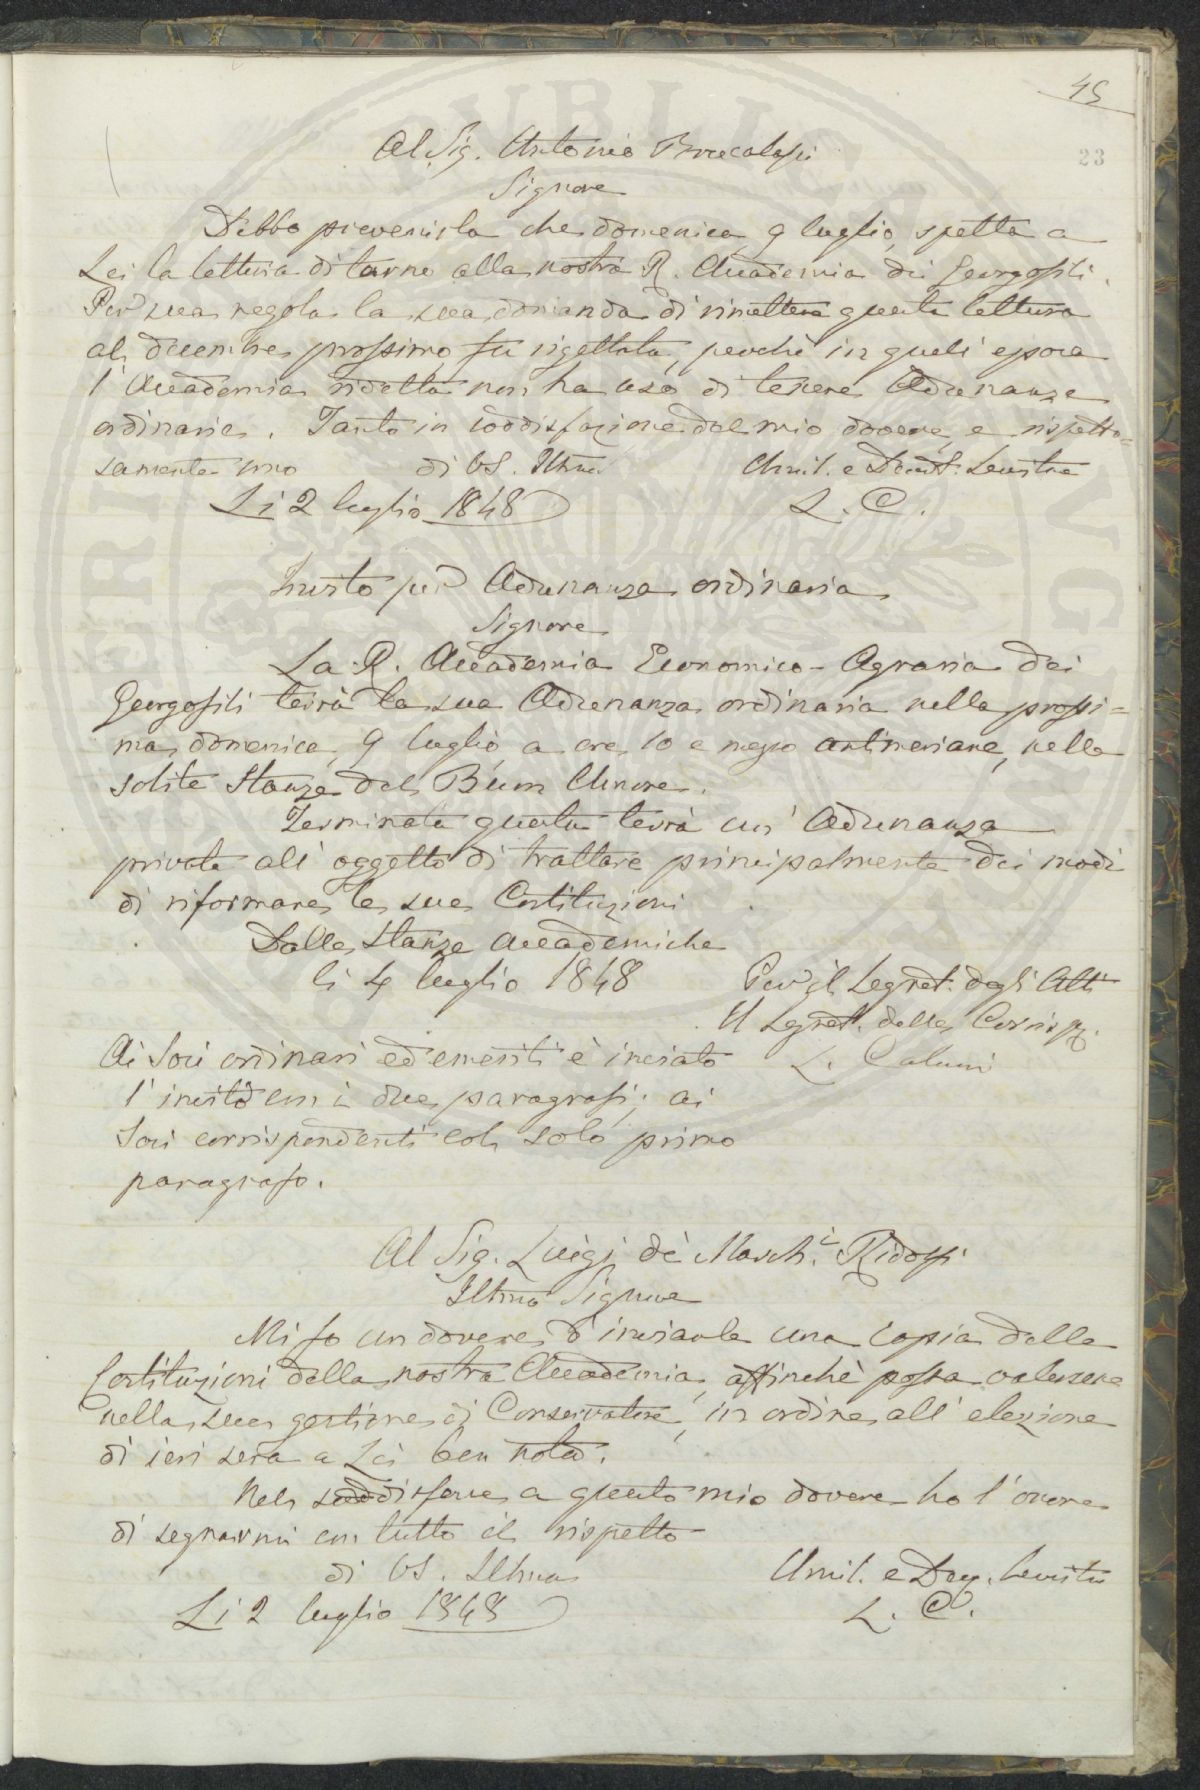 45
23
Al Sig. Antonio Brucalassi
Signore
Debbo prevenirla che domenica 9 luglio, spetta a
Lei la lettura di turno alla nostra R. Accademia dei Georgofili.
Per sua regola la sua domanda di rimettere questa lettura
al decembre prossimo fu rigettata, perchè in quell'epoca
l'Accademia ridetta non ha uso di tenere Adunanze
ordinarie. Tanto in soddisfazione del mio dovere, e rispetto=
samente sono di VS. Illma Umil. e Devot. Servitore
Li 2 luglio 1848 L. C.
Invito per Adunanza ordinaria
Signore
La R. Accademia Economico-Agraria dei
Georgofili terrà la sua Adunanza ordinaria nella prossi=
ma domenica 9 luglio a ore 10 e mezzo antimeriane, nelle
solite Stanze del Buon Umore.
Terminata questa terrà un'Adunanza
privata all'oggetto di trattare principalmente dei modi
di riformare le sue Costituzioni
Dalle Stanze Accademiche
li 4 luglio 1848 Per il Segret. degli Atti
Il Segret. delle Corrisp.
Ai Soci ordinari ed emeriti è inviato L. Calamai
l'invito con i due paragrafi; ai
Soci corrispondenti col solo primo
paragrafo.
Al Sig. Luigi de' March.i Ridolfi
Illmo Signore
Mi fo un dovere d'inviarle una copia delle
Costituzioni della nostra Accademia, affinchè possa valersene
nella sua gestione di Conservatore, in ordine all'elezione
di ieri sera a Lei ben nota.
Nel soddisfare a questo mio dovere ho l'onore
di segnarmi con tutto il rispetto
di VS. Illma Umil. e Dev. Servitre
Li 2 luglio 1848 L. C.